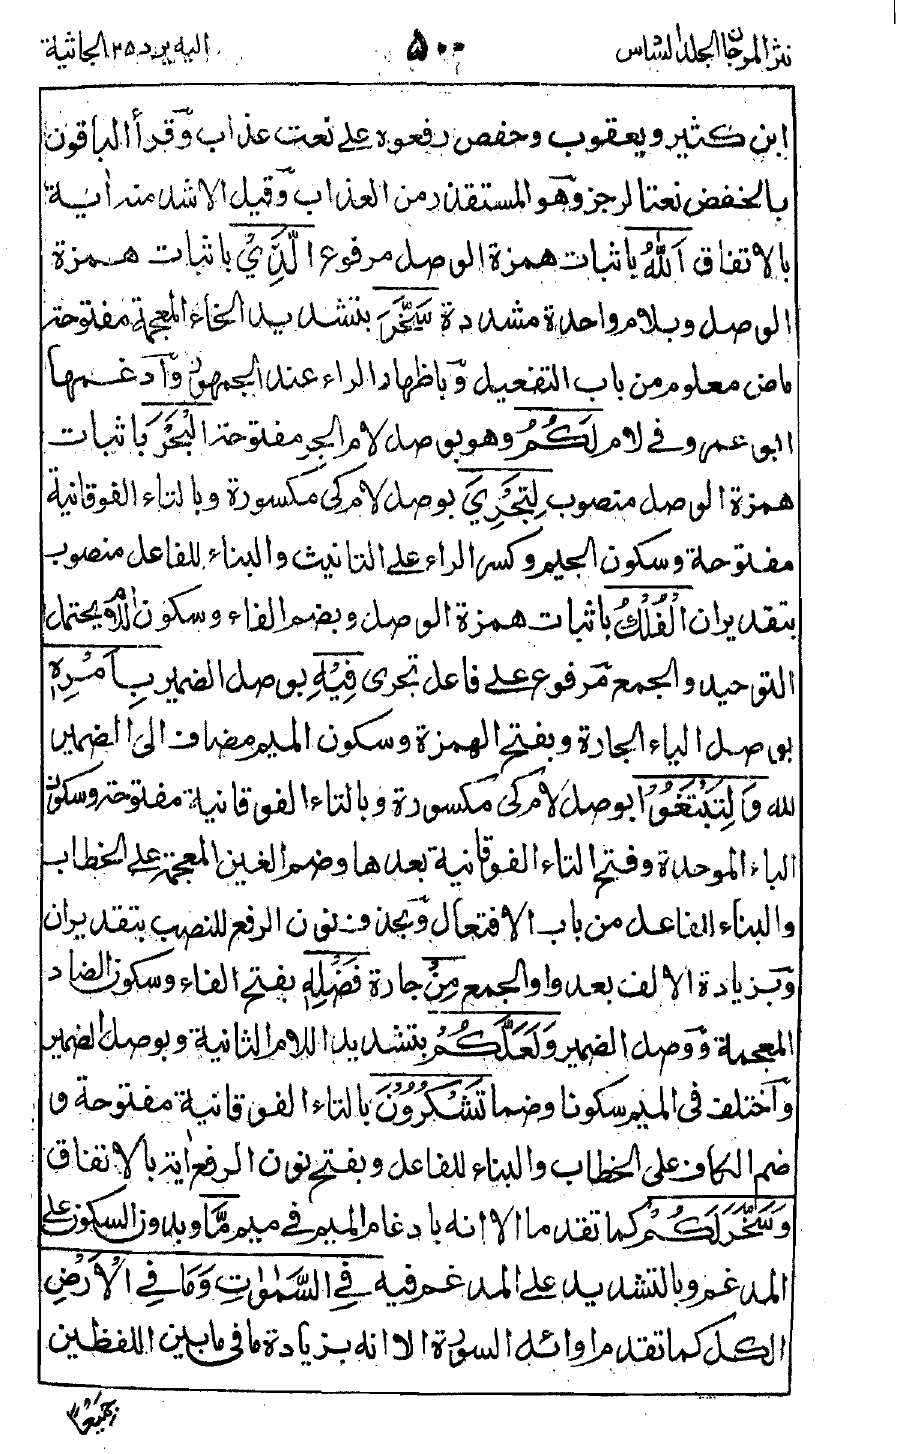 نثر المرجان الجلد السادس ٥٠٠ اليه يرد ٢٥ الجاثية
ابن كثير ويعقوب وحفص رفعوه على نعت عذاب وقرأ الباقون
بالخفض نعتا لرجز وهو المستقذر من العذاب وقيل الاشد منه اٰية
بالاتفاق اَللّٰهُ باثبات همزة الوصل مرفوع الَّذِيْ باثبات همزة
الوصل وبلام واحدة مشددة سَخَّرَ بتشديد الخاء المعجمة مفتوحة
ماض معلوم من باب التفعيل وباظهار الراء عند الجمهور وآدغمها
ابو عمرو في لام لَكُمُ وهو بوصل لام الجر مفتوحة الْبَحْرَ باثبات
همزة الوصل منصوب لِتَجْرِيَ بوصل لام كى مكسورة وبالتاء الفوقانية
مفتوحة وسكون الجيم وكسر الراء على التانيث والبناء للفاعل منصوب
بتقدير ان الْفُلْكُ باثبات همزة الوصل وبضم الفاء وسكون اللام ويحتمل
التوحيد والجمع مرفوع على فاعل تجرى فِيْهِ بوصل الضمير بِاَمْرِهٖ
بوصل الباء الجارة وبفتح الهمزة وسكون الميم مضاف الى الضمير
لله وَلِتَبْتَغُوْا بوصل لام كى مكسورة وبالتاء الفوقانية مفتوحة وسكون
الباء الموحدة وفتح التاء الفوقانية بعدها وضم الغين المعجمة على الخطاب
والبناء للفاعل من باب الافتعال وبحذف نون الرفع للنصب بتقدير ان
وبزيادة الالف بعد واو الجمع مِنْ جارة فَضْلِهٖ بفتح الفاء وسكون الضاد
المعجمة ووصل الضمير وَلَعَلَّكُمْ بتشديد اللام الثانية وبوصل الضمير
وآختلف فى الميم سكونا وضما تَشْكُرُوْنَ بالتاء الفوقانية مفتوحة و
ضم الكاف على الخطاب والبناء للفاعل وبفتح نون الرفع اٰية بالاتفاق
وَسَخَّرَ لَكُمْ كما تقدما الا انه بادغام الميم فى ميم مَّا وبدون السكون على
المدغم وبالتشديد على المدغم فيه فِي السَّمٰوٰتِ وَمَا فِي الْاَرْضِ
الكل كما تقدم اوائل السورة الا انه بزيادة ما فى ما بين اللفظين
جَمِيْعًا